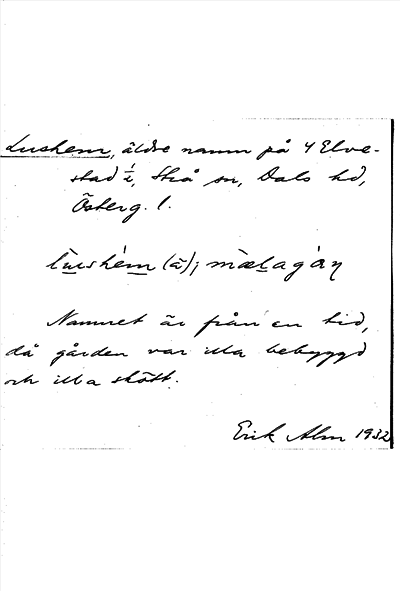 Lushem, äldre namn på 4 Elve-
stad í, Strå sn, Dals hd,
Österg. l.
lùshém (ä); mælagàɳ
Namnet är från en tid,
då gården var illa bebyggd
och illa skött.
Erik Alm 1932